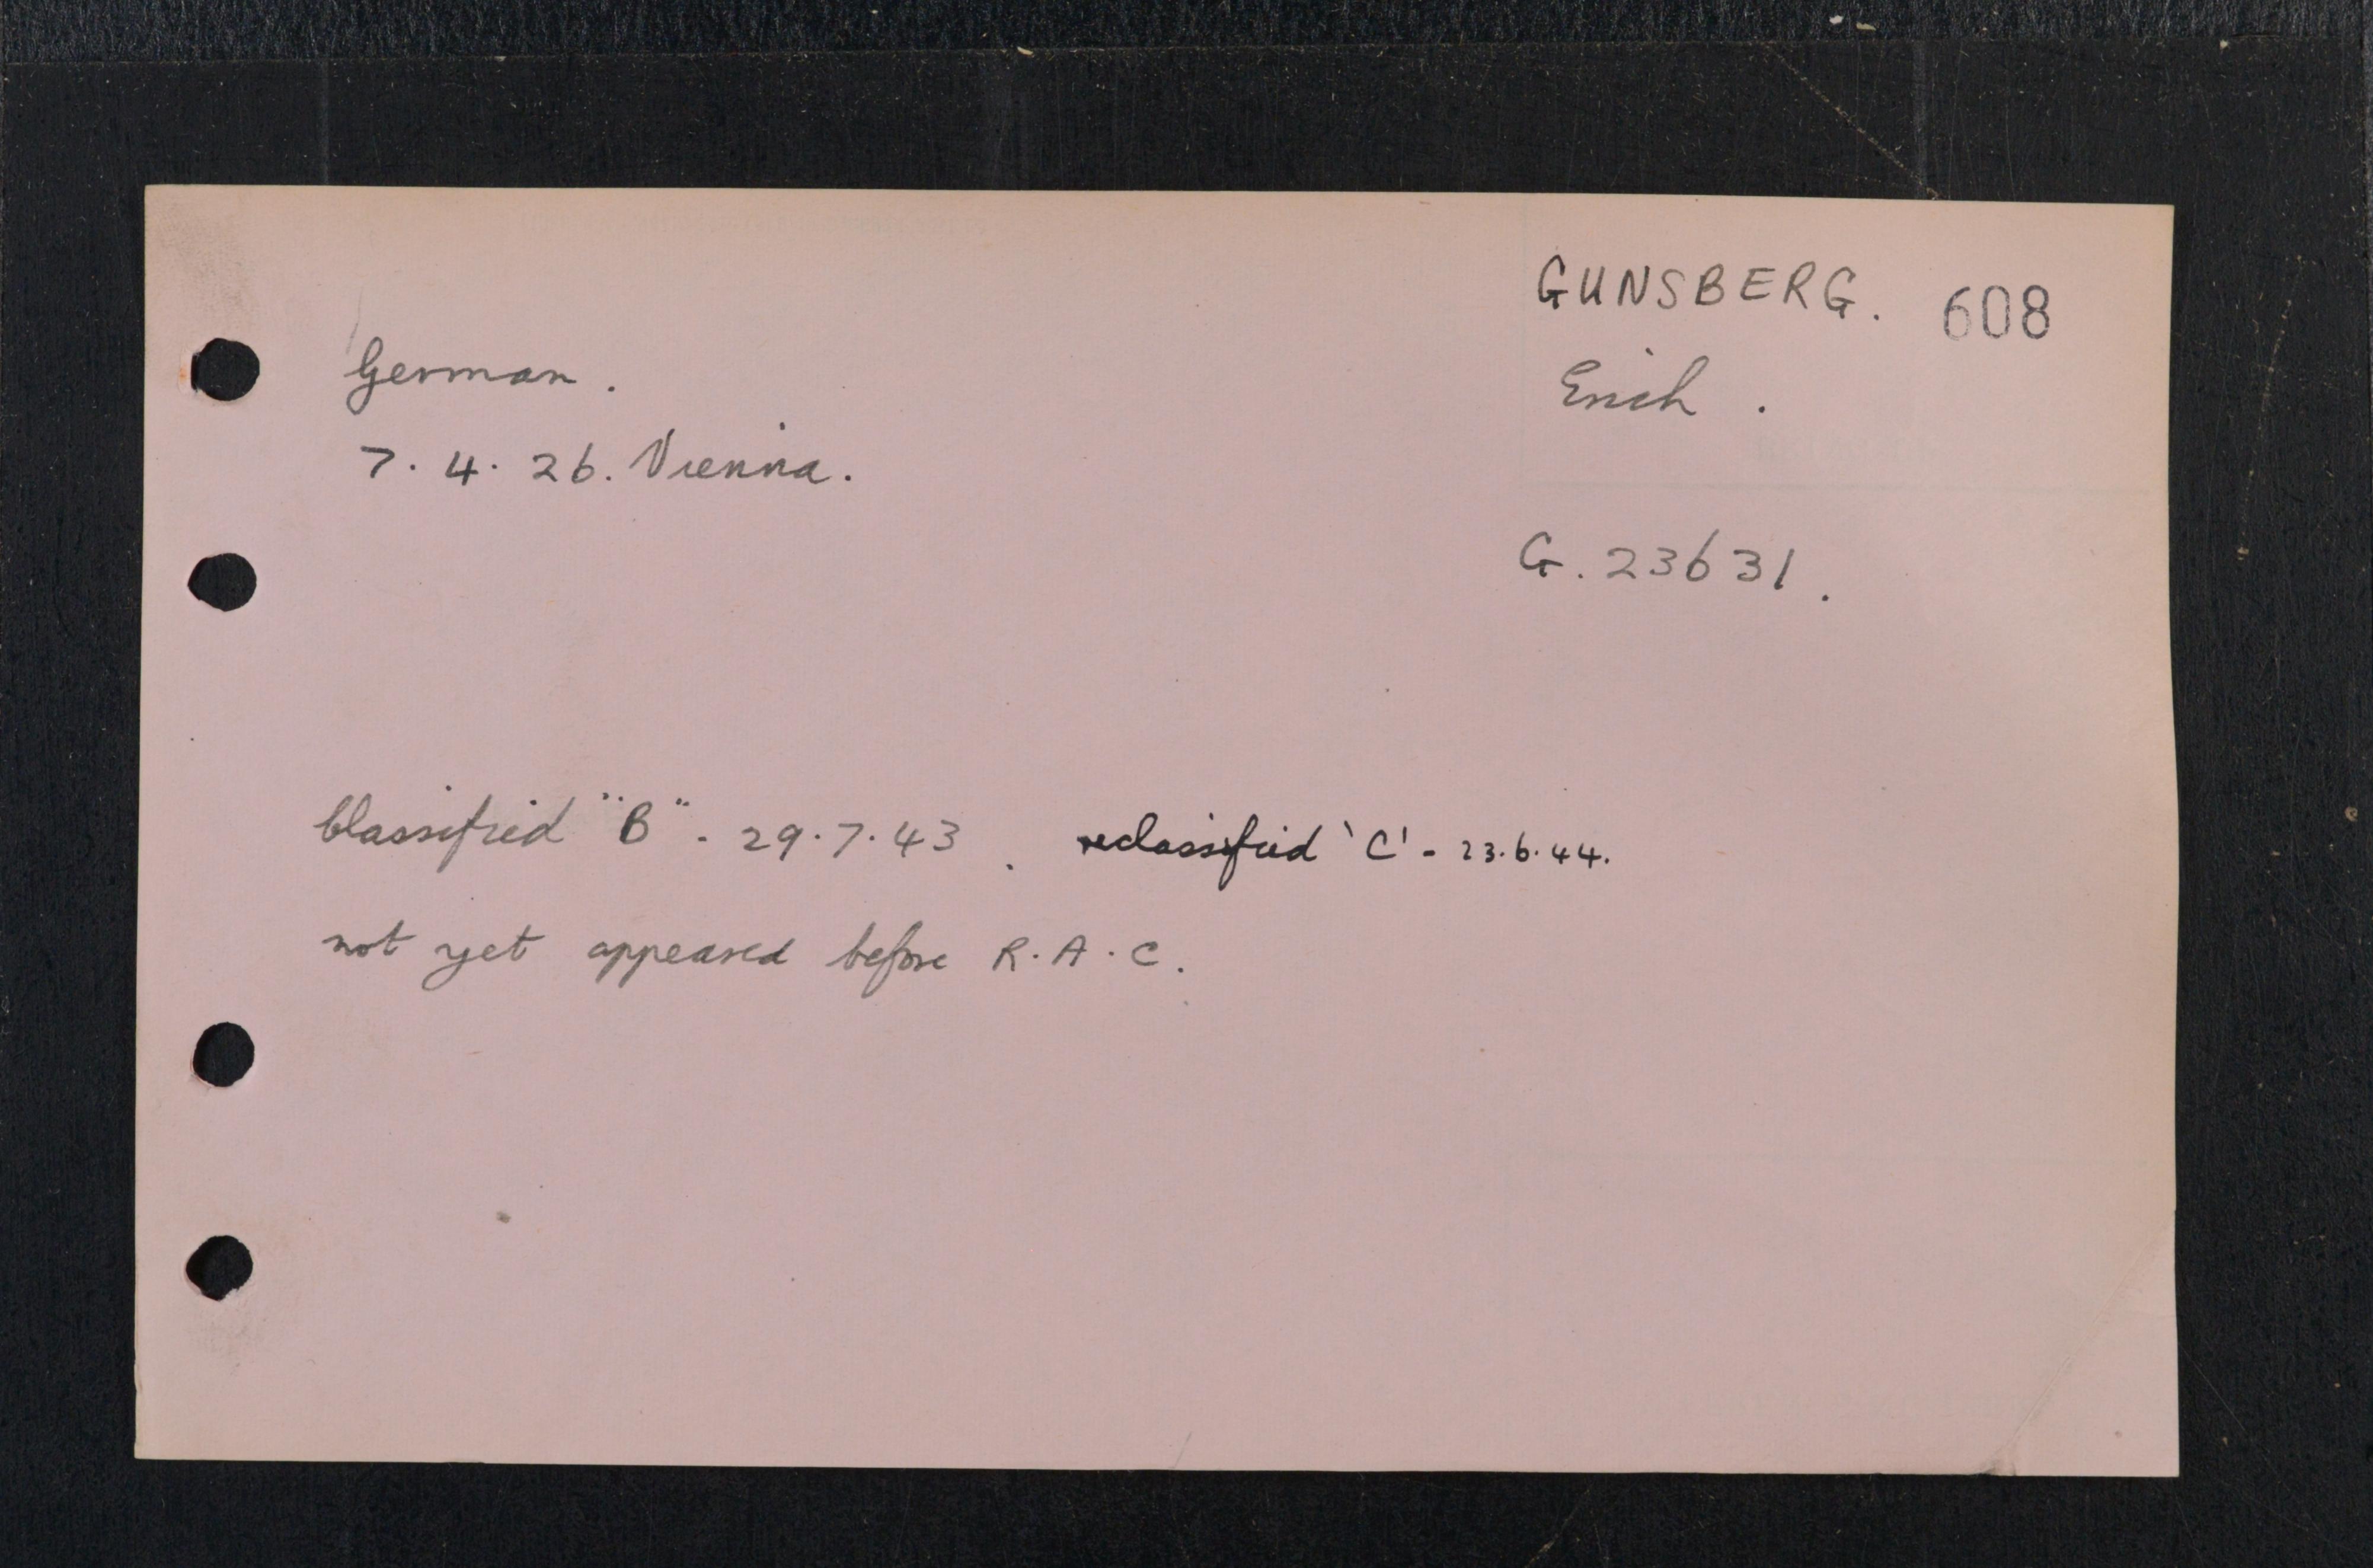 GUNSBERG. 608
Erich.
German.
7.4.26. Vienna.
G.23631.
Classified "B" - 29.7.43. reclassified 'C' - 23.6.44.
not yet appeared before R.A.C.